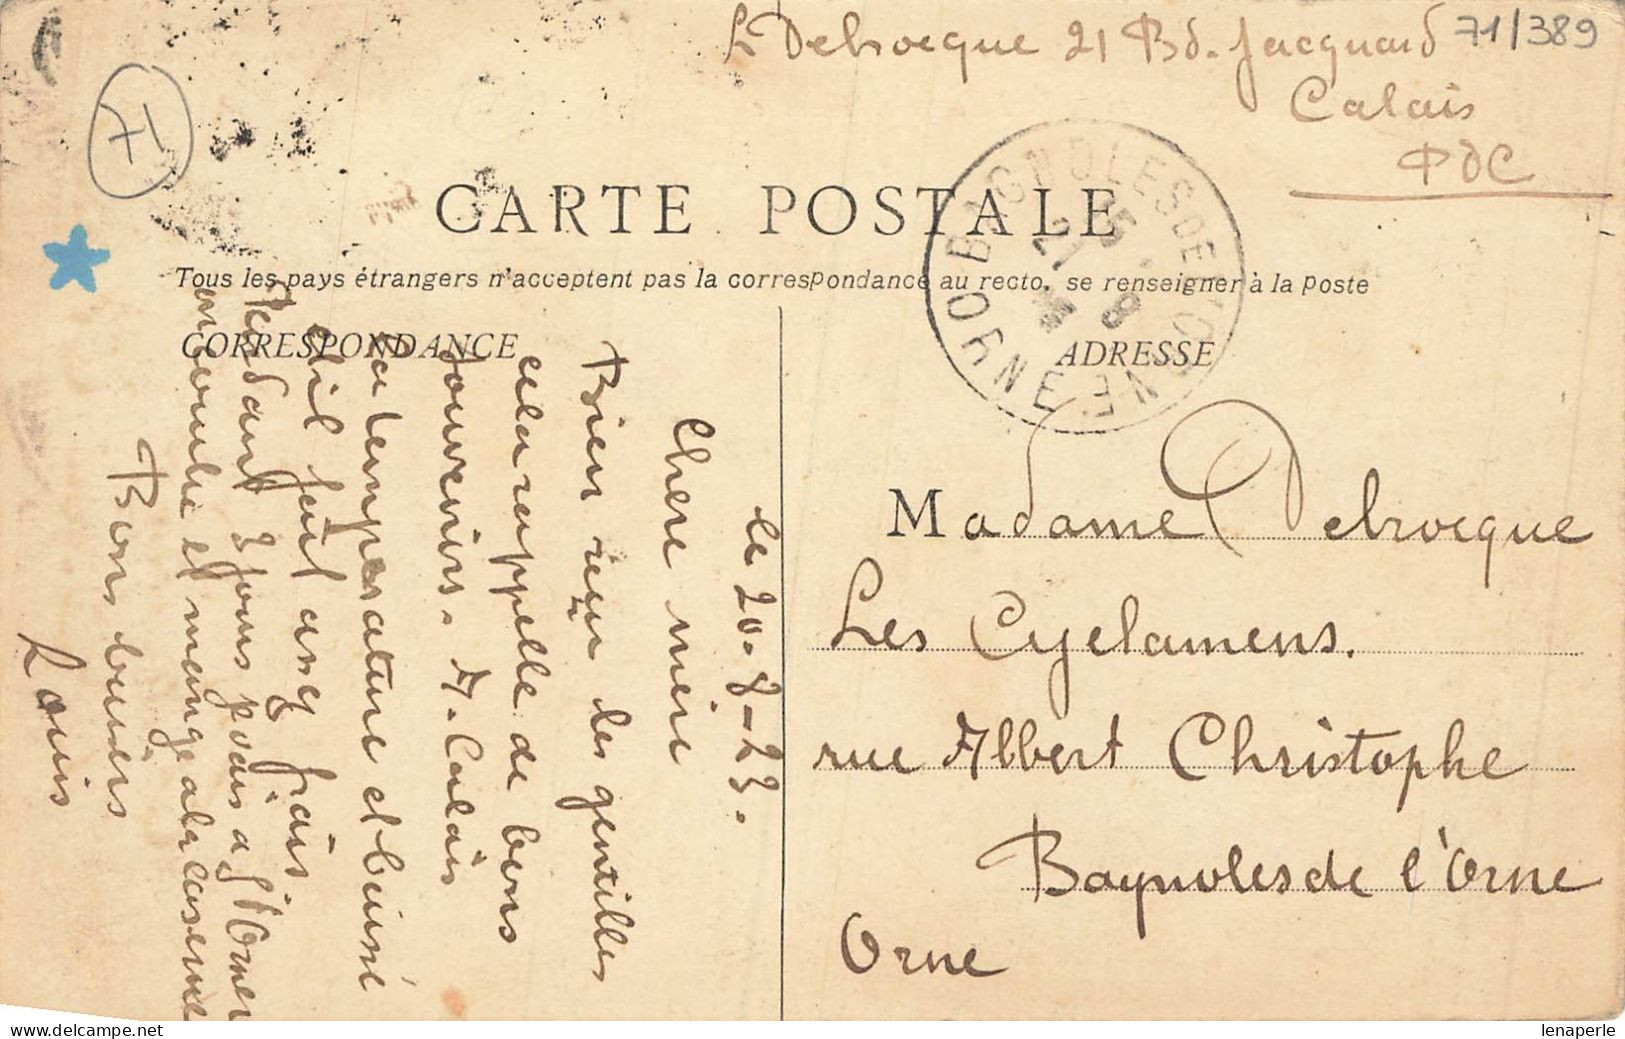 L Debrocque 21 Bd. Jacquard 71/389
Calais
PdC
71
CARTE POSTALE
Tous les pays étrangers n'acceptent pas la correspondance au recto, se renseigner à la Poste
CORRESPONDANCE
ADRESSE
BAGNOLES DE L'ORNE
ORNE
21
8
le 20-8-23.
Chere mère
Bien reçu les gentilles
cela rappelle de bons
souvenirs. A Calais
la temperature et baissé
et il fait assez frais.
Pendant 3 jours je vais a St Omer
en et mange a la caserne
Bons baisers
Louis
Madame Debrocque
Les Cyclamens.
rue Albert Christophe
Bagnoles de l'Orne
Orne
lenaperle